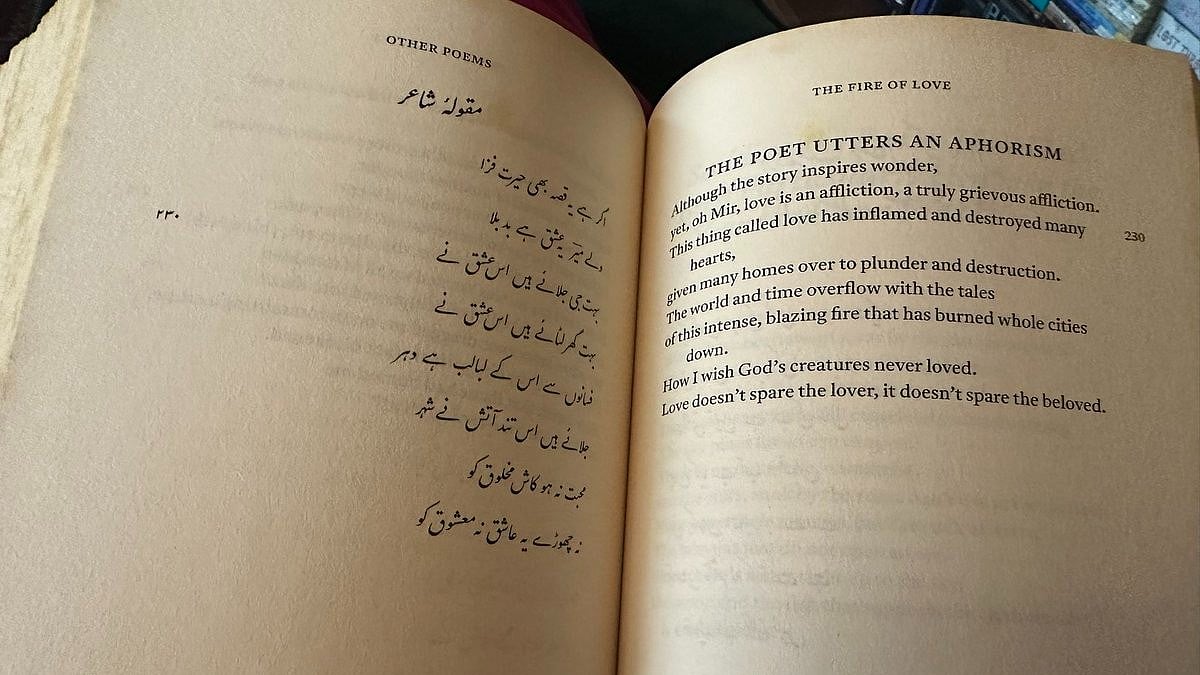 OTHER POEMS
مقولۂ شاعر
اگر ہے یہ قصہ بھی حیرت فزا
ولے میرؔ یہ عشق ہے بد بلا
۲۳۰
بہت جی جلائے ہیں اس عشق نے
بہت گھر لٹائے ہیں اس عشق نے
فسانوں سے اس کے لبالب ہے دہر
جلائے ہیں اس تند آتش نے شہر
محبت نہ ہو کاش مخلوق کو
نہ چھوڑے یہ عاشق نہ معشوق کو
THE FIRE OF LOVE
THE POET UTTERS AN APHORISM
Although the story inspires wonder,
yet, oh Mir, love is an affliction, a truly grievous affliction.
This thing called love has inflamed and destroyed many
230
hearts,
given many homes over to plunder and destruction.
The world and time overflow with the tales
of this intense, blazing fire that has burned whole cities
down.
How I wish God's creatures never loved.
Love doesn't spare the lover, it doesn't spare the beloved.